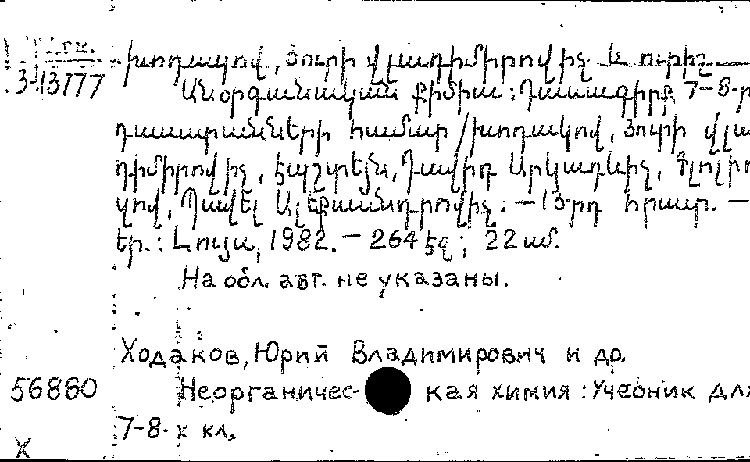 Խոդակով, Յուրի Վլադիմիրովիչ և ուրիշ.
3-13777
Անօրգանական քիմիա: Դասագիրք 7-8-ր
դասարանների համար /Խոդակով, Յուրի Վլա
դիմիրովիչ, Էպշտեյն, Դավիդ Արկադևիչ, Գլորիո
զով, Պավել Ալեքսանդրովիչ. - 13-րդ հրատ. -
Եր.: Լույս, 1982. - 264 էջ; 22 սմ.
На обл. авт. не указаны.
Ходаков, Юрий Владимирович и др.
56880 Неорганичес- кая химия: Учебник для
7-8-х кл.
X